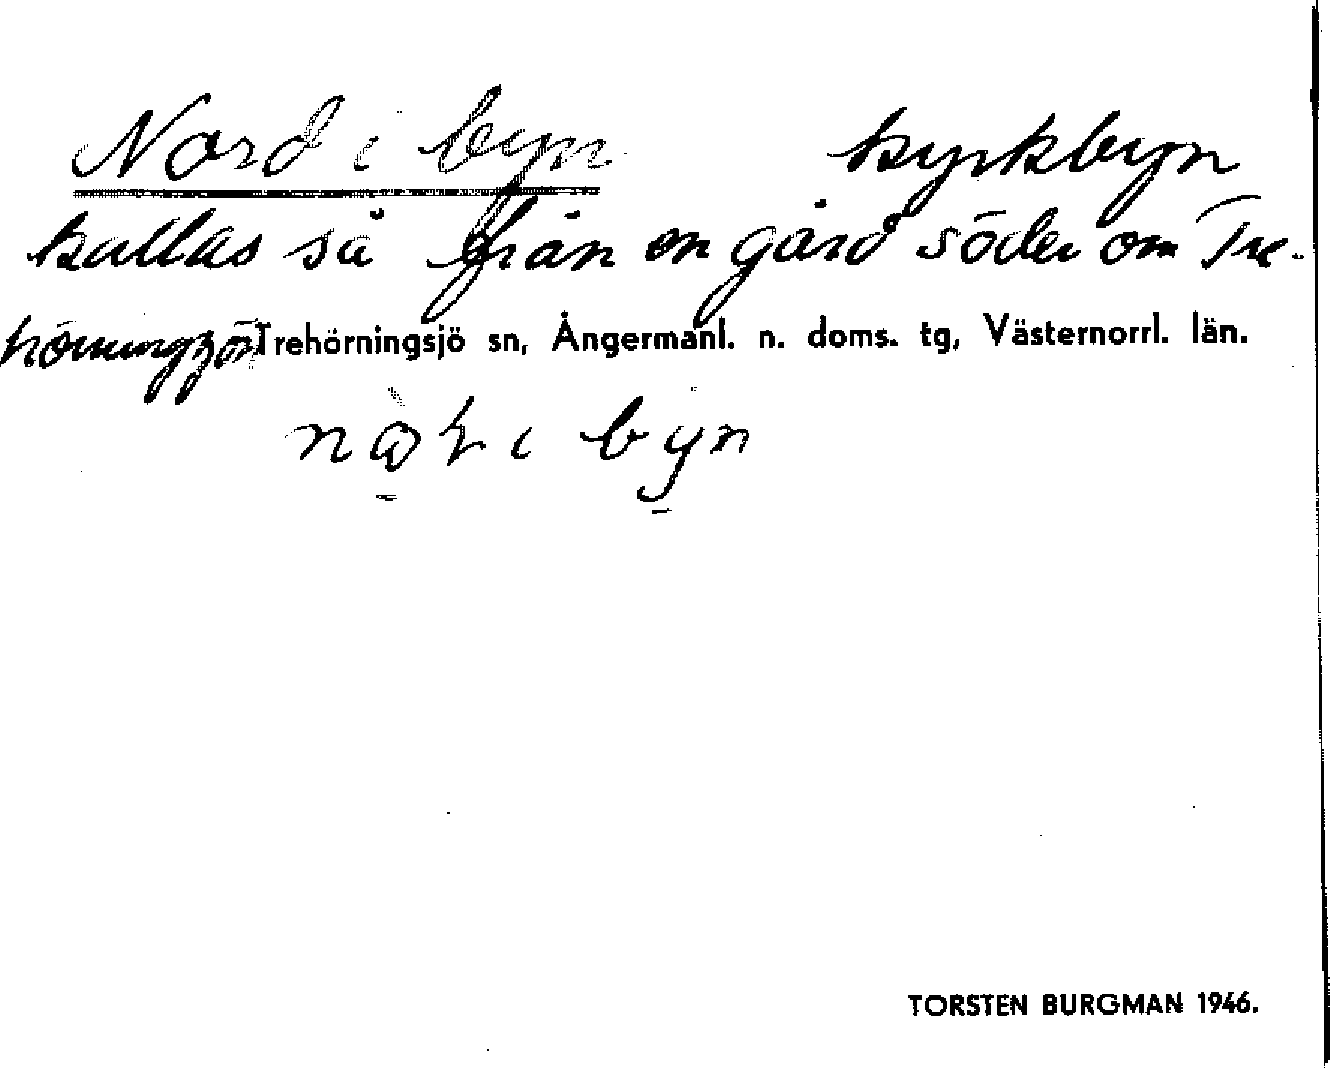 Nord i byn kyrkbyn
kallas så från en gård söder om Tre-
hörningsjön
Trehörningsjö sn, Ångermanl. n. doms. tg, Västernorrl. län.
i byn
TORSTEN BURGMAN 1946.